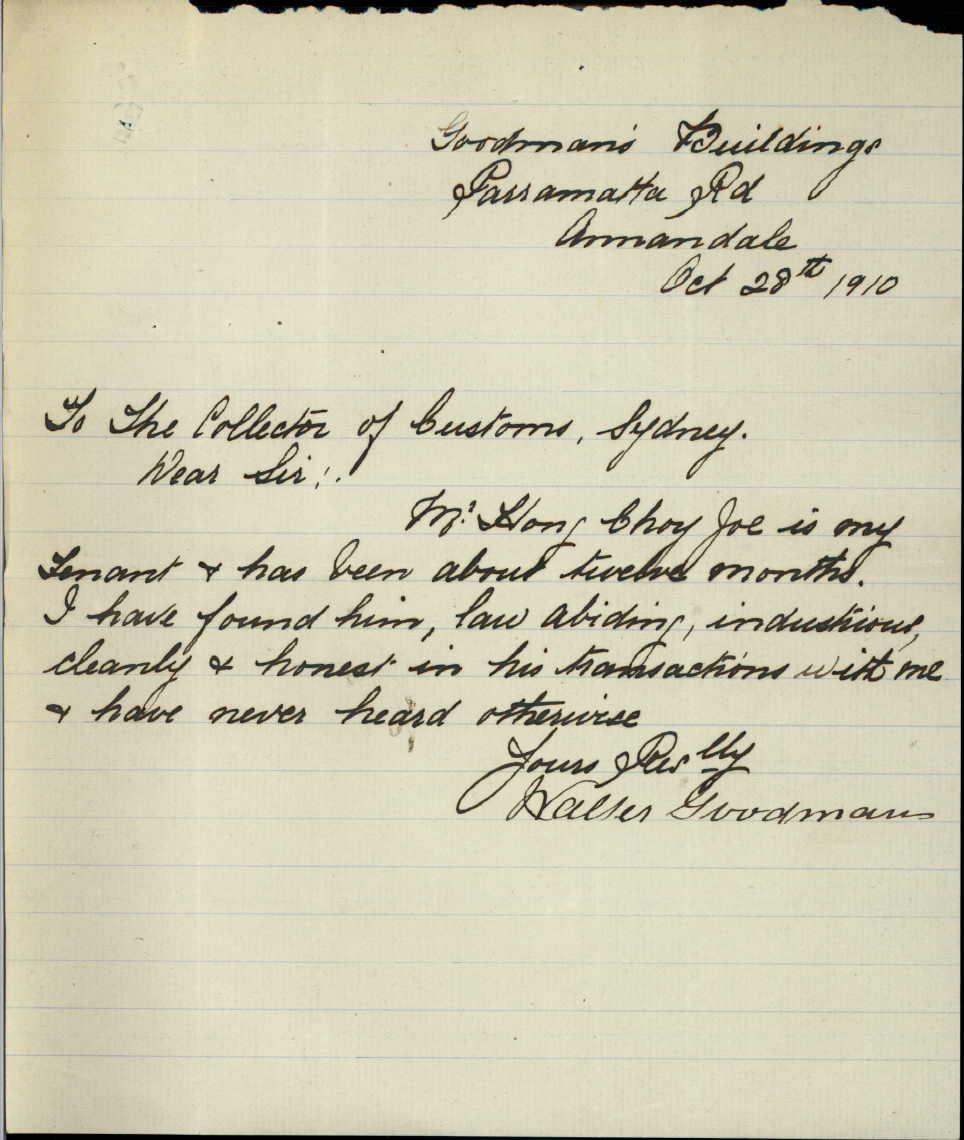 Goodman's Buildings
Parramatta Rd
Annandale
Oct 28th 1910
To The Collector of Customs, Sydney.
Dear Sir:.
Mr. Hong Choy Joe is my
tenant & has been about twelve months.
I have found him, law abiding, industrious,
cleanly & honest in his transactions with me
& have never heard otherwise
Yours
Walter Goodman